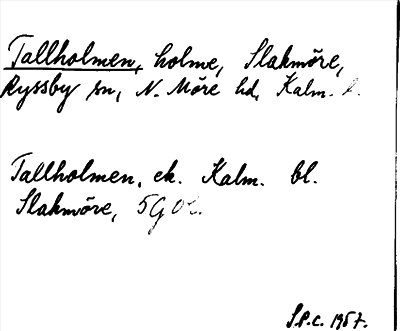 Tallholmen, holme, Slakmöre,
Ryssby sn, N. Möre hd, Kalm. l.
Tallholmen, ek. Kalm. bl.
Slakmöre, 5G Ol.
S.P.C. 1957.